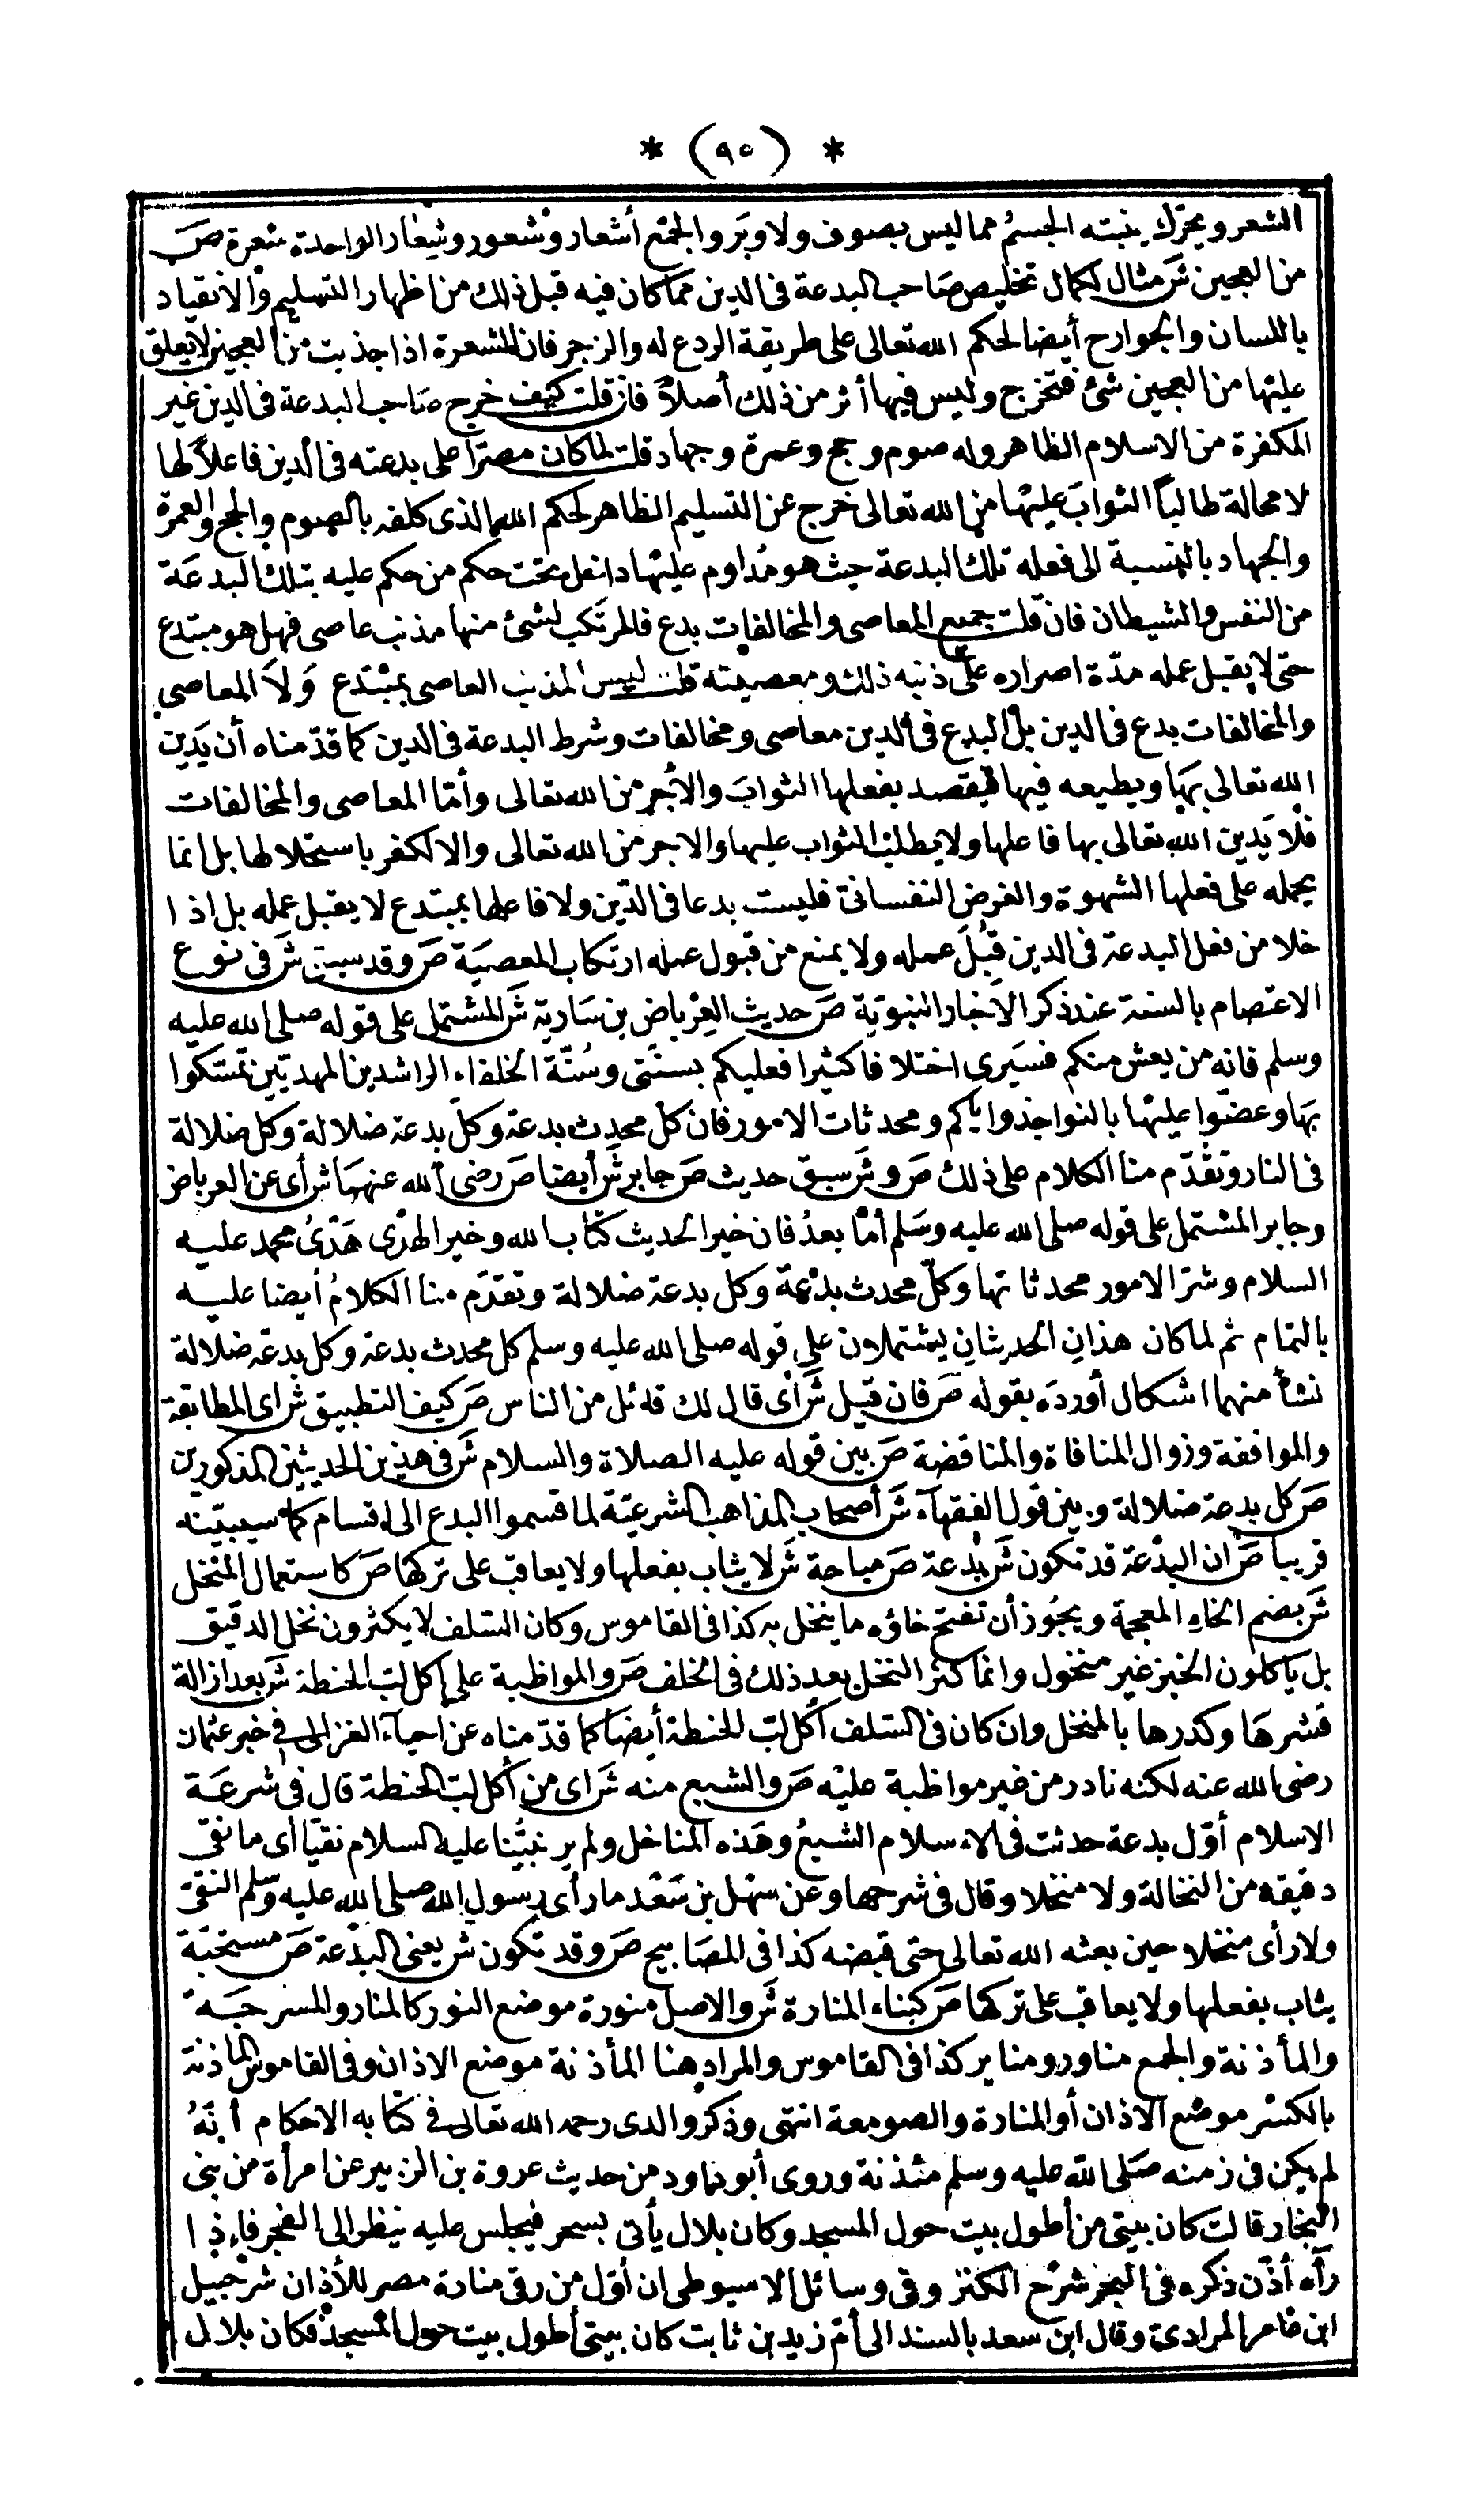 * (٩٥) *
الشعر ويحرّك ينبته الجسمُ مما ليس بصوف ولا وبَر والجمّع أشعار وشعور وشِعار الواحدة شعرة صَ
من العجين شَ مثال لكمال تخليص صَاحب البدعة فى الدين ممّا كان فيه قبل ذلك من اظهار التسليم والانقياد
باللسان والجوارح أيضا لحكم الله تعالى على طريقة الردع له والزجر فان الشعرة اذا جذبت من العجين لا يعلق
عليها من العجين شئ فتخرج وليس فيها أثر من ذلك أصلاً فان قلت كيف خرج صَاحب البدعة فى الدين غير
المكفرة من الاسلام الظاهر وله صوم وحج وعمرة وجهاد قلت لما كان مصرّا على بدعته فى الدين فاعلاً لها
لا محالة طالباً الثوابَ عليها من الله تعالى خرج عن التسليم الظاهر لحكم الله الذى كلفه بالصوم والحج والعمرة
والجهاد بالنسبة الى فعله تلك البدعة حيث هو مُداوم عليها داخل تحت حكم من حكم عليه بتلك البدعَة
من النفس والشيطان فان قلت جميع المعاصى والمخالفات بدع فالمرتكب لشئ منها مذنب عاصى فهل هو مبتدع
حتى لا يقبل عمله مدّة اصراره على ذنبه ذلك ومعصيته قلت ليس المذنب العاصى بمبْتَدع وَلاَ المعاصى
والمخالفات بدع فى الدين بل البدع فى الدين معاصى ومخالفات وشرط البدعة فى الدين كما قدّمناه أن يَدَين
الله تعالى بهَا ويطيعه فيها فيقصد بفعلها الثوابَ والأجر من الله تعالى وأمّا المعاصى والمخالفات
فلا يَدين الله تعالى بها فاعلها ولا يطلب الثواب عليها والاجر من الله تعالى والا لكفر باستحلالها بل انما
يحمله على فعلها الشهوة والغرض النفسانى فليست بدعا فى الدّين ولا فاعلها بمبتدع لا يقبل عمله بل اذا
خلا من فعل البدعة فى الدين قُبلَ عمله ولا يمنع من قبول عمله ارتكاب المعصيَة صَ وقد سبق شَ فى نوع
الاعتصام بالسنة عند ذكر الأخبار النبوَيّة صَ حديث العِرْباض بن سَارية شَ المشتمل على قوله صلى الله عليه
وسلم فانه من يعش منكم فسيَرى اختلافا كثيرا فعليكم بسنّتى وسُنّة الخلفاء الراشدين المهديّين تمسّكوا
بهَا وعضّوا عليهَا بالنواجذ واياكم ومحدثات الامور فان كلّ محدث بدعة وكلّ بدعة ضلالة وكل ضلالة
فى النار وتقدّم منا الكلام على ذلك صَ و شَ سبق حديث صَ جابر شَ أيضا صَ رضى الله عنهمَا شَ أى عن العرباض
وجابر المشتمل على قوله صلى الله عليه وسَلم أمّا بعدُ فان خير الحديث كتاب الله وخير الهدْى هَدْىُ محمد عليه
السلام وشرّ الامور محدثاتها وكلّ محدث بدْعة وكل بدعة ضلالة وتقدّم منا الكلامُ أيضا عليه
بالتمام ثم لما كان هذان الحديثان يشتملان على قوله صلى الله عليه وسلم كل محدث بدعة وكل بدعة ضلالة
نشأ منهما اشكال أوردَه بقوله صَ فان قيل شَ أى قال لك قائل من الناس صَ كيف التطبيق شَ اى المطابقة
والموافقة وزوال المنافاة والمناقضة صَ بين قوله عليه الصلاة والسلام شَ فى هذين الحديثين المذكورين
صَ كل بدعة ضلالة وبين قول الفقهاء شَ أصحاب المذاهب الشرعيّة لما قسموا البدع الى اقسام كما سيبيّنه
قريبا صَ ان البدْعة قد تكون شَ بدْعة صَ مباحة شَ لا يثاب بفعلها ولا يعاقب على تركهَا صَ كاستعمال المنْخل
شَ بضم الخاءِ المعجمة ويجُوز أن تفتح خاؤه ما ينخل به كذا فى القاموس وكان السّلف لا يكثرون نخل الدقيق
بل يأكلون الخبز غير منخول وانما كثر النخل بعد ذلك فى الخلف صَ والمواظبة على أكل لبّ الحنطة شَ بعد ازالة
قشرهَا وكدرها بالمنخل وان كان فى السّلف أكل لبّ الحنطة أيضَا كما قدّمناه عن احياء الغزالى فى خبر عثمان
رضى الله عنه لكنه نادر من غير مواظبة عليْه صَ والشبع منه شَ اى من أكل لبّ الحنطة قال فى شرعَة
الاسلام أوّل بدعة حدثت فى الاسلام الشبعُ وهَذه المناخل ولم ير نبيّنا عليه السلام نقيّا أى ما نقى
دقيقه من النخالة ولا منخلا وقال فى شرحها وعن سهْل بن سَعْد ما رأى رسول الله صلى الله عليه وسلم النقىّ
ولا رأى منخلا حين بعثه الله تعالى حتى قبضه كذا فى المصَابيح صَ وقد تكون شَ يعنى البدْعة صَ مستحَبّة
يثاب بفعلها ولا يعاقب على تركها صَ كبناء المنارة شَ والاصل منورة موضع النور كالمنار والمسرجَة
والمأذنة والجمع مناور ومناير كذا فى القاموس والمراد هنا المأذنة موضع الاذان وفى القاموس المئذنة
بالكسْر موضع الاذان أو المنارة والصومعة انتهى وذكر والدى رحمه الله تعالى فى كتابه الاحكام أنّهُ
لم يكن فى زمنه صَلى الله عليه وسلم مئذنة وروى أبو داود من حديث عروة بن الزبير عن امرأة من بنى
النجار قالت كان بيتى من أطول بيت حول المسجد وكان بلال يأتى بسحر فيجلس عليه ينظر الى الفجر فاذا
رآه أذّن ذكره فى البحر شرْح الكنز وفى وسائل الاسيوطى ان أوّل من رقى منارة مصر للأذان شرْحبيل
ابن عامر المرادىّ وقال ابن سعد بالسند الى أمّ زيد بن ثابت كان بيتى أطول بيت حول المسجد فكان بلال